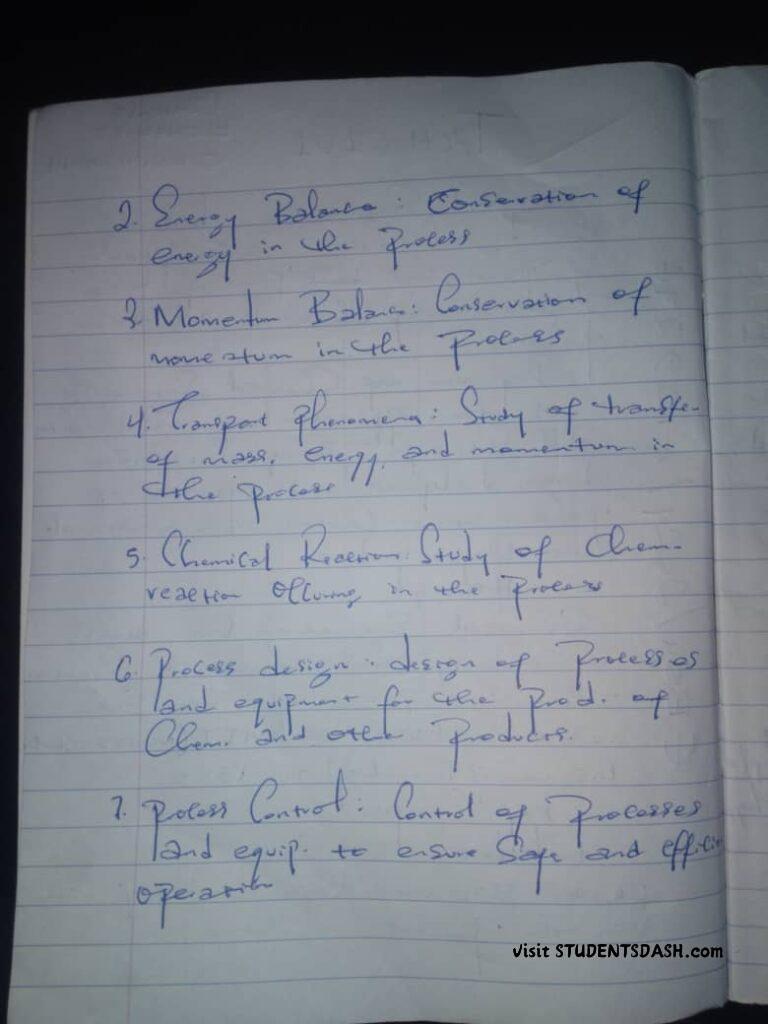 2. Energy Balance : Conservation of
energy in the Process
3. Momentum Balance: Conservation of
momentum in the Process
4. Transport Phenomena: Study of transfe-
of mass, energy, and momentum in
the process
5. Chemical Reaction: Study of Chem-
reaction occuring in the Process
6. Process design : design of Processes
and equipment for the Prod. of
Chem. and other Products.
7. Process Control : Control of Processes
and equip. to ensure Safe and
operation
visit STUDENTSDASH.com